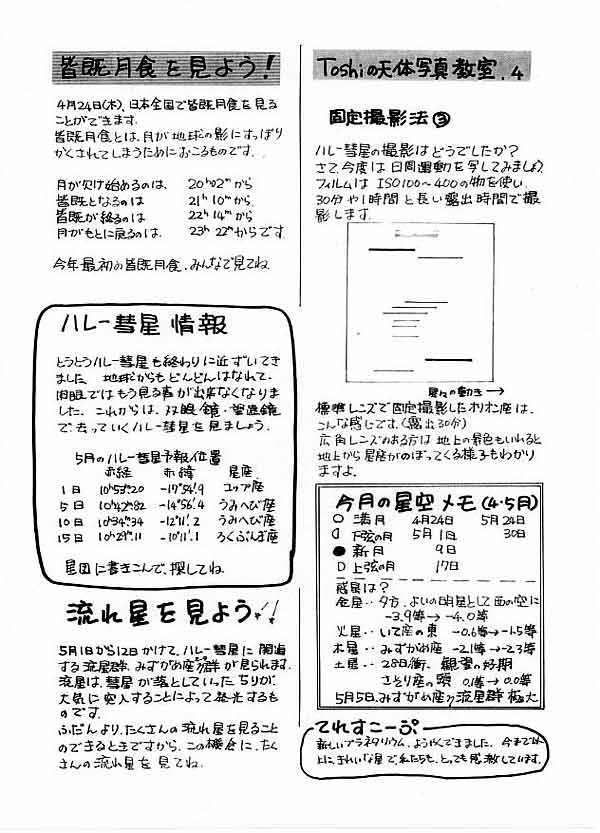 皆既月食を見よう!
4月24日(木)、日本全国で皆既月食を見る
ことができます。
皆既月食とは、月が地球の影にすっぽり
かくされてしまうためにおこるものです。
月が欠け始めるのは、 20h02m から
皆既となるのは 21h10m から
皆既が終るのは 22h14m から
月がもとに戻るのは、 23h22m からです
今年最初の皆既月食、みんなで見てね。
ハレー彗星 情報
とうとうハレー彗星も終わりに近ずいてき
ました。地球からもどんどんはなれて、
肉眼ではもう見る事が出来なくなりま
した。これからは、双眼鏡・望遠鏡
で、去っていくハレー彗星を見ましょう。
5月のハレー彗星予報位置
赤経 赤緯 星座
1日 10h53m.20 -17°54'.9 コップ座
5日 10h42m.82 -14°56'.4 うみへび座
10日 10h34m.34 -12°11'.2 うみへび座
15日 10h29m.11 -10°11'.1 ろくぶんぎ座
星図に書きこんで、探してね。
流れ星を見よう!!
5月1日から12日かけて、ハレー彗星に関連
する流星群、みずがめ座η群が見られます。
流星は、彗星が落としていったちりが、
大気に突入することによって発光するも
のです。
ふだんより、たくさんの流れ星を見ること
のできるときですから、この機会に、たく
さんの流れ星を見てね。
Toshiの天体写真教室.4
固定撮影法③
ハレー彗星の撮影はどうでしたか?
さて、今度は日周運動を写してみましょう。
フィルムは ISO100~400の物を使い、
30分や1時間と長い露出時間で撮
影します。
星々の動き→
標準レンズで固定撮影したオリオン座は、
こんな感じです。(露出30分)
広角レンズのある方は地上の景色もいれると
地上から星座がのぼってくる様子もわかり
ますよ。
今月の星空メモ(4・5月)
○ 満月 4月24日 5月24日
下弦の月 5月1日 30日
● 新月 9日
D 上弦の月 17日
惑星は?
金星‥夕方、よいの明星として西の空に
-3.9等→-4.0等
火星‥いて座の東 -0.6等→-1.5等
木星‥みずがめ座 -2.1等→-2.3等
土星‥28日衝、観望の好期
さそり座の頭 0.1等→0.0等
5月5日、みずがめ座η流星群 極大
てれすこーぷ
新しいプラネタリウム、ようやくできました。今まで以
上にきれいな星で、私たちも、とっても感激しています。